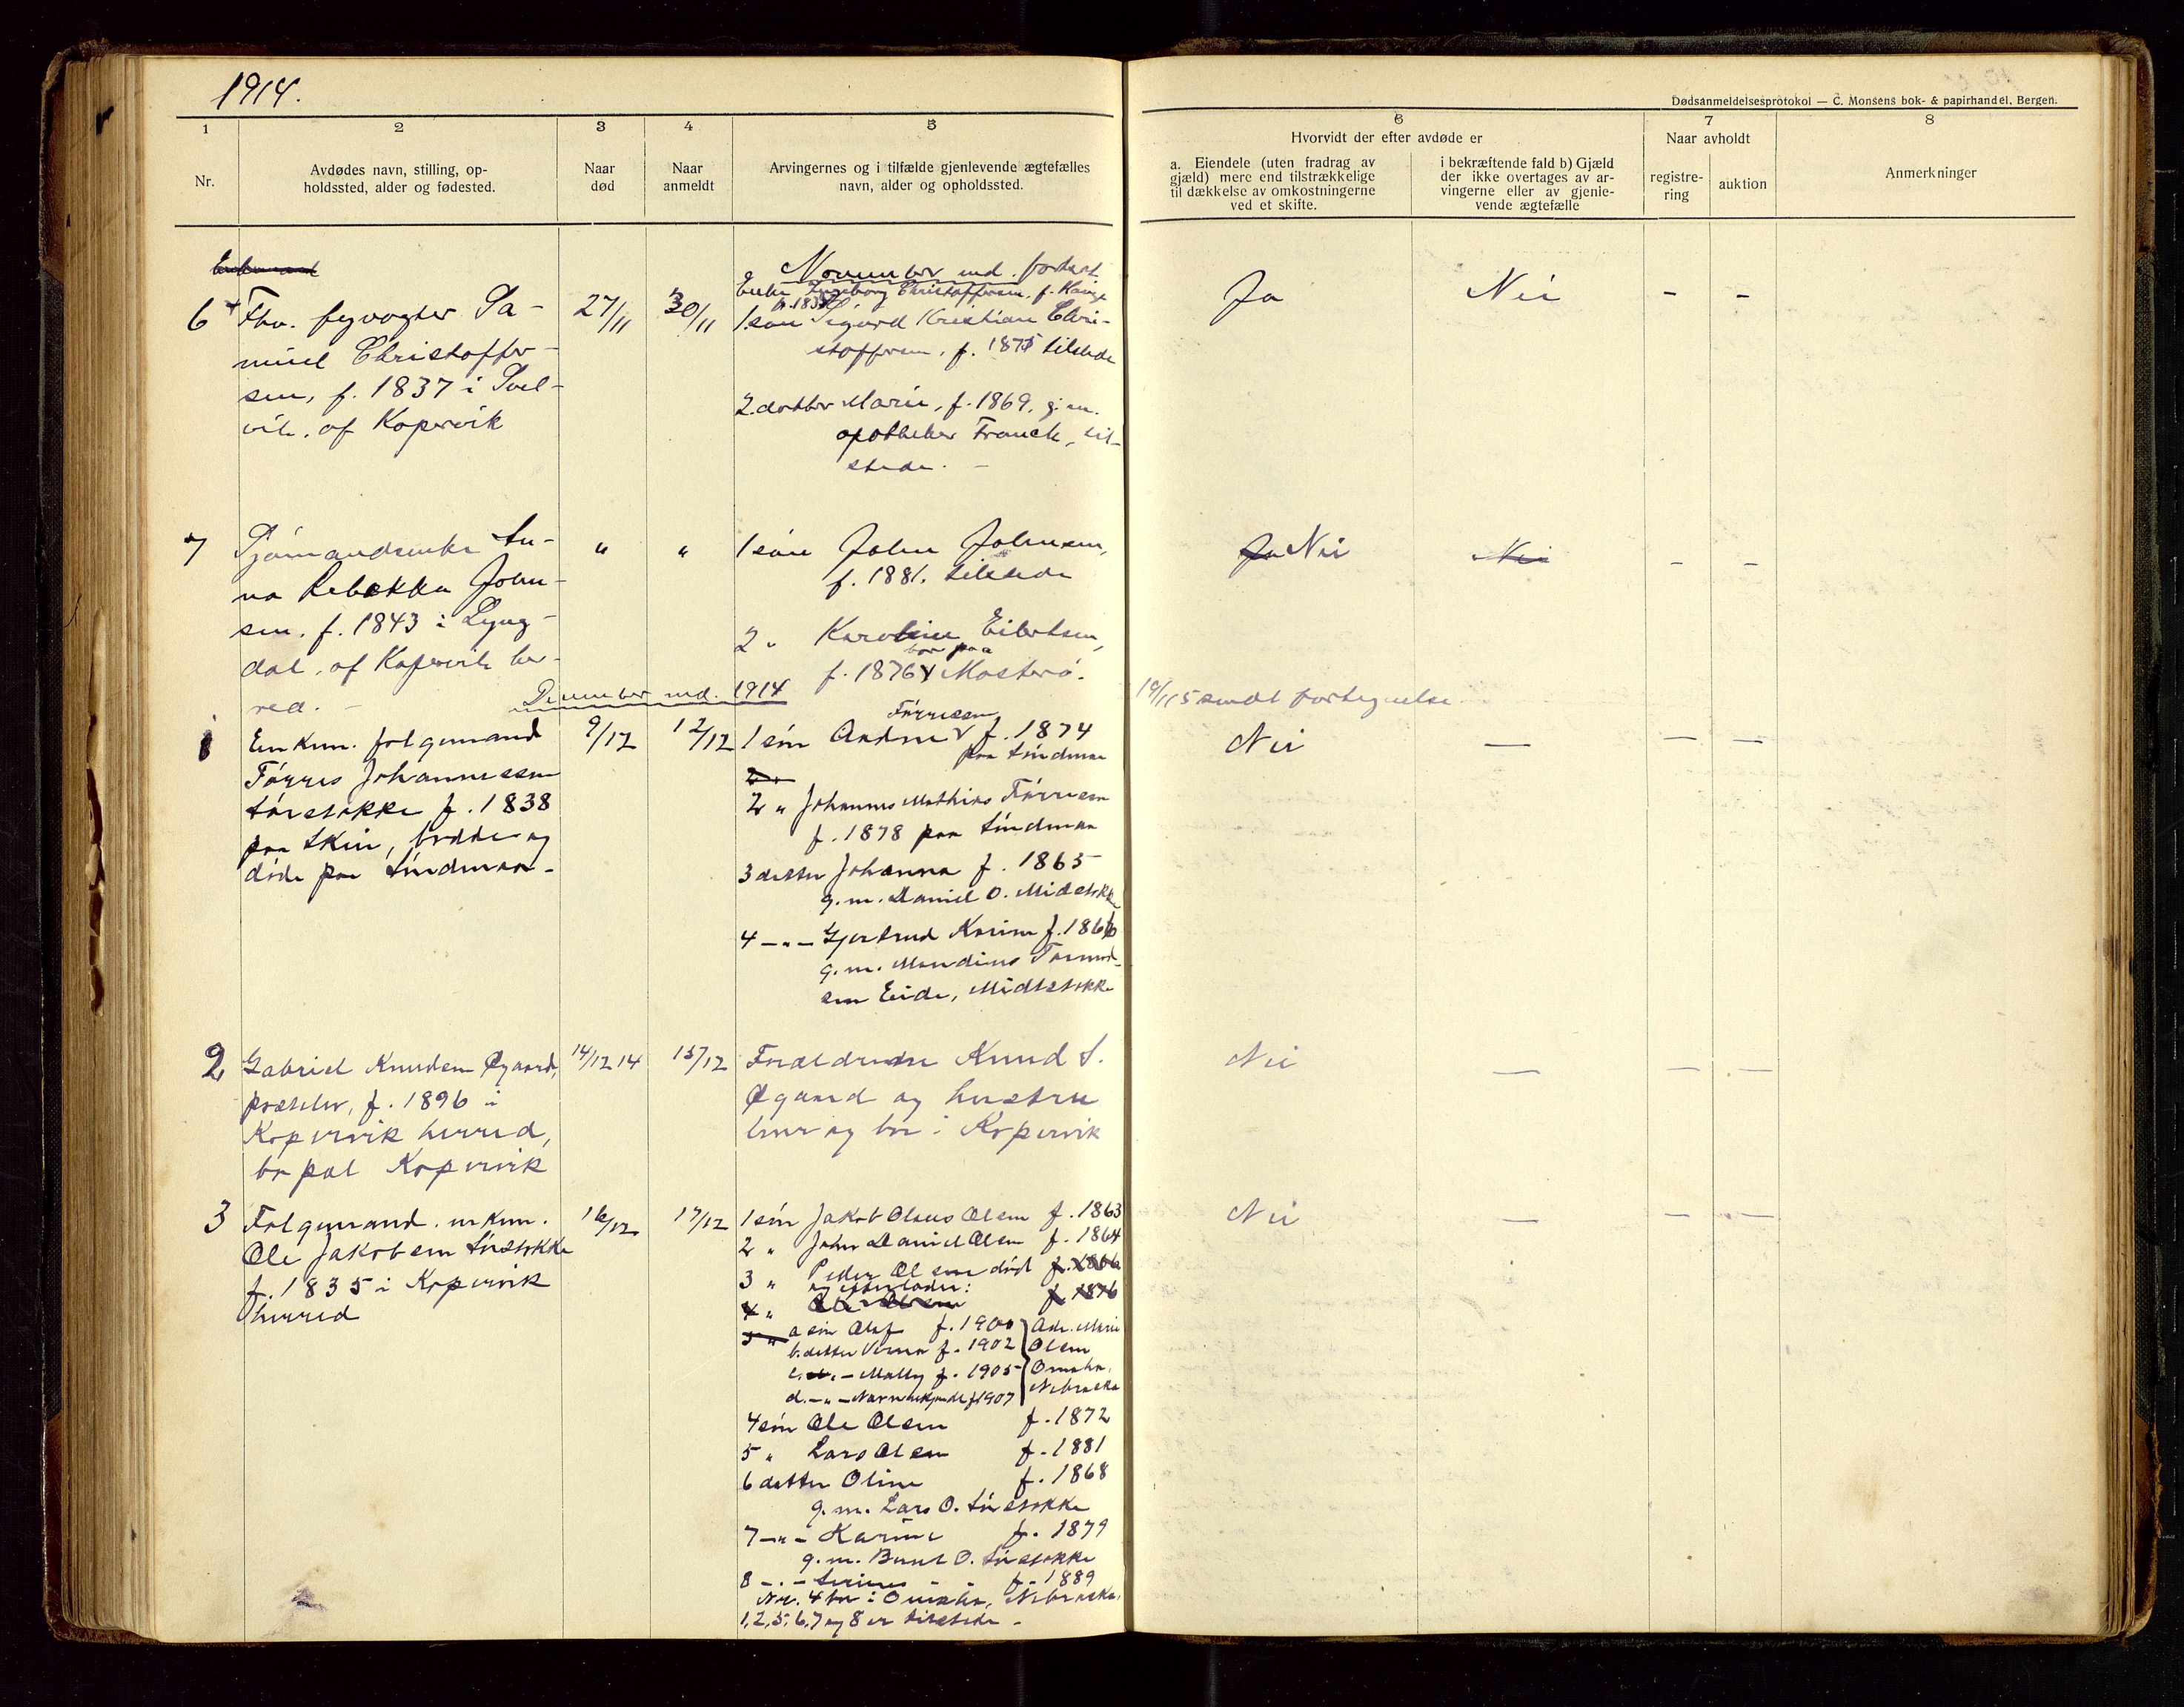 1914.
Dødsanmeldelsesprotokol — C. Monsens bok- & papirhandel, Bergen.
1
2
3
4
5
6
7
8
Nr.
Avdødes navn, stilling, op-
holdssted, alder og fødested.
Naar
død
Naar
anmeldt
Arvingernes og i tilfælde gjenlevende ægtefælles
navn, alder og opholdssted.
Hvorvidt der efter avdøde er
a. Eiendele (uten fradrag av
gjæld) mere end tilstrækkelige
til dækkelse av omkostningerne
ved et skifte.
i bekræftende fald b) Gjæld
der ikke overtages av ar-
vingerne eller av gjenle-
vende ægtefælle
Naar avholdt
registre-
ring
auktion
Anmerkninger
November md. fortsat
6
Fhv. fyrvogter Sa-
muel Christoffer-
sen, f. 1837 i Svel-
vik, af Kopervik
27/11
30/11
Enke Ingeborg Christoffersen, f. Hauge
1. søn Sigurd Kristian Chri-
stoffersen, f. 1875 tilstede
2. datter Marie, f. 1869, g. m.
apotheker Franck, til-
stede. -
Ja
Nei
- -
7
Sjømandsenke An-
na Rebekka John-
sen, f. 1843 i Lyng-
dal, af Kopervik her-
red. -
"
"
1 søn John Johnsen,
f. 1881. tilstede
2 " Karoline Eilertsen,
bor paa
f. 1876 Mosterø.
Ja Nei
Nei
- -
December md. 1914
1
Enkem. folgemand
Tørres Johannessen
Sørstokke f. 1838
paa Skeie, bodde og
døde paa Sundmaa -
9/12
12/12
Tørresen
1 søn Andreas f. 1874
paa Sundmaa
2 " Johannes Mathias Tørresen
f. 1878 paa Sundmaa
3 datter Johanna f. 1865
g. m. Daniel O. Midtstokke
4 — " — Gjertrud Karine f. 1866
g. m. Mandius Tormod-
sen Eide, Midtstokke
16/1 15 sendt fortegnelse
Nei
— — —
2
Gabriel Knudsen Øgaard,
f. 1896 i
Kopervik herred,
bopæl Kopervik
14/12 14
15/12
Forældrene Knud S.
Øgaard og hustru
lever og bor i Kopervik
Nei
— — —
3
Folgemand. enkem.
Ole Jakobsen Sørstokke
f. 1835 i Kopervik
herred
16/12
17/12
1 søn Jakob Olaus Olsen f. 1863
2 " John Daniel Olsen f. 1864
3 " Peder Olsen død f. 1866
og efterlader:
4 " Ole Olsen f. 1876
a søn Olaf f. 1900
b. datter Verna f. 1902
c. — " — Mally f. 1905
d. — " — Navn ukjendt f. 1907
Adr. Marie
Olsen
Omaha,
Nebraska
4 søn Ole Olsen f. 1872
5 " Lars Olsen f. 1881
6 datter Oline f. 1868
g. m. Lars O. Sørstokke
7 — " — Karine f. 1879
g. m. Bernt O. Sørstokke
8 — " — f. 1889
Nr. 4 bor i Omaha, Nebraska,
1, 2, 5, 6, 7 og 8 er tilstede -
Nei
— — —